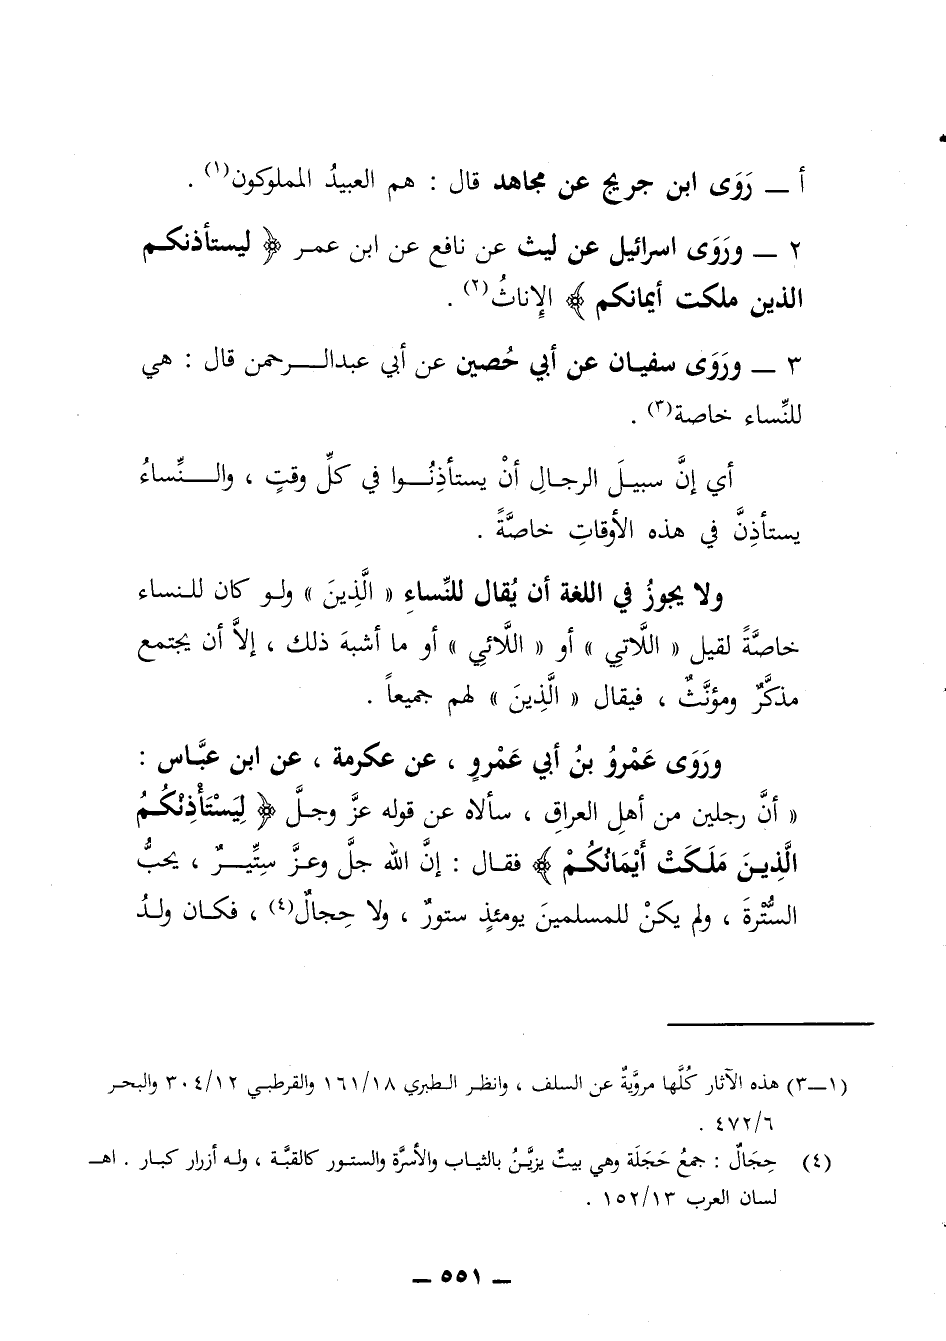 أ ــ رَوَى ابن جريج عن مجاهد قال : هم العبيدُ المملوكون(١) .
٢ ــ ورَوَى اسرائيل عن ليث عن نافع عن ابن عمر ﴿ ليستأذنكم
الذين ملكت أيمانكم ﴾ الإناثُ(٢) .
٣ ــ ورَوَى سفيان عن أبي حُصين عن أبي عبدالـرحمن قال : هي
للنِّساء خاصة(٣) .
أي إنَّ سبيلَ الرجالِ أنْ يستأذِنُـوا في كلِّ وقتٍ ، والـنِّساءُ
يستأذِنَّ في هذه الأوقاتِ خاصَّةً .
ولا يجوزُ في اللغة أن يُقال للنِّساءِ « الَّذِينَ » ولـو كان للـنساء
خاصَّةً لقيل « اللَّاتِي » أو « اللَّائِي » أو ما أشبهَ ذلك ، إلاَّ أن يجتمع
مذكَّرٌ ومؤنَّثٌ ، فيقال « الَّذِينَ » لهم جميعاً .
ورَوَى عَمْرُو بنُ أبي عَمْروٍ ، عن عكرمة ، عن ابن عبَّاس :
« أنَّ رجلين من أهلِ العراقِ ، سألاه عن قوله عزَّ وجلَّ ﴿ لِيَسْتَأْذِنْكُمُ
الَّذِينَ مَلَكَتْ أَيْمَانُكُمْ ﴾ فقـال : إنَّ الله جلَّ وعزَّ ستِّيـرٌ ، يحبُّ
السُّتْرةَ ، ولم يكنْ للمسلمينَ يومئذٍ ستورٌ ، ولا حِجالٌ(٤) ، فكـان ولـدُ
(١ــ٣) هذه الآثار كُلَّها مرويَّةٌ عن السلف ، وانظر الـطبري ١٦١/١٨ والقرطبـي ٣٠٤/١٢ والبحـر
٤٧٢/٦ .
(٤) حِجَالٌ : جمعُ حَجَلَة وهي بيتٌ يزيَّـنُ بالثيـاب والأسرَّة والستـور كالقبَّـة ، ولـه أزرار كبـار . اهـ
لسان العرب ١٥٢/١٣ .
ــ ٥٥١ ــ